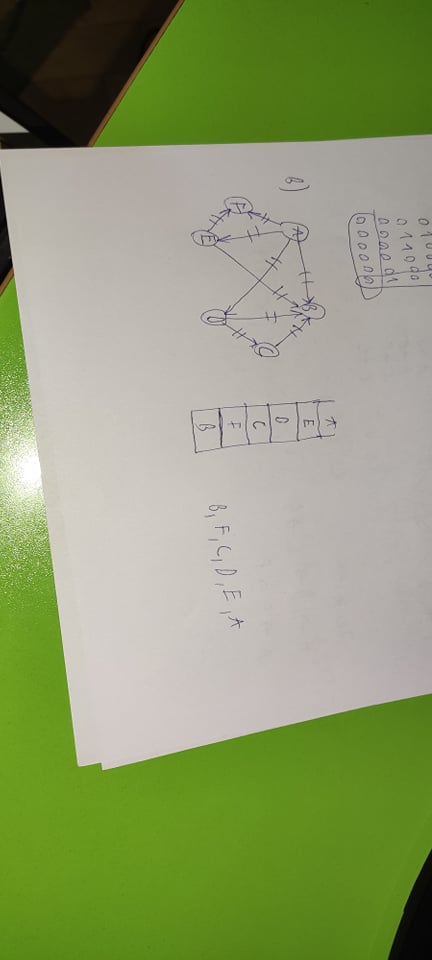 0 1 1 0 0 0
0 0 0 0 0 1
0 0 0 0 0 0
B)
A
B
F
C
E
D
A
E
D
C
F
B
B, F, C, D, E, A